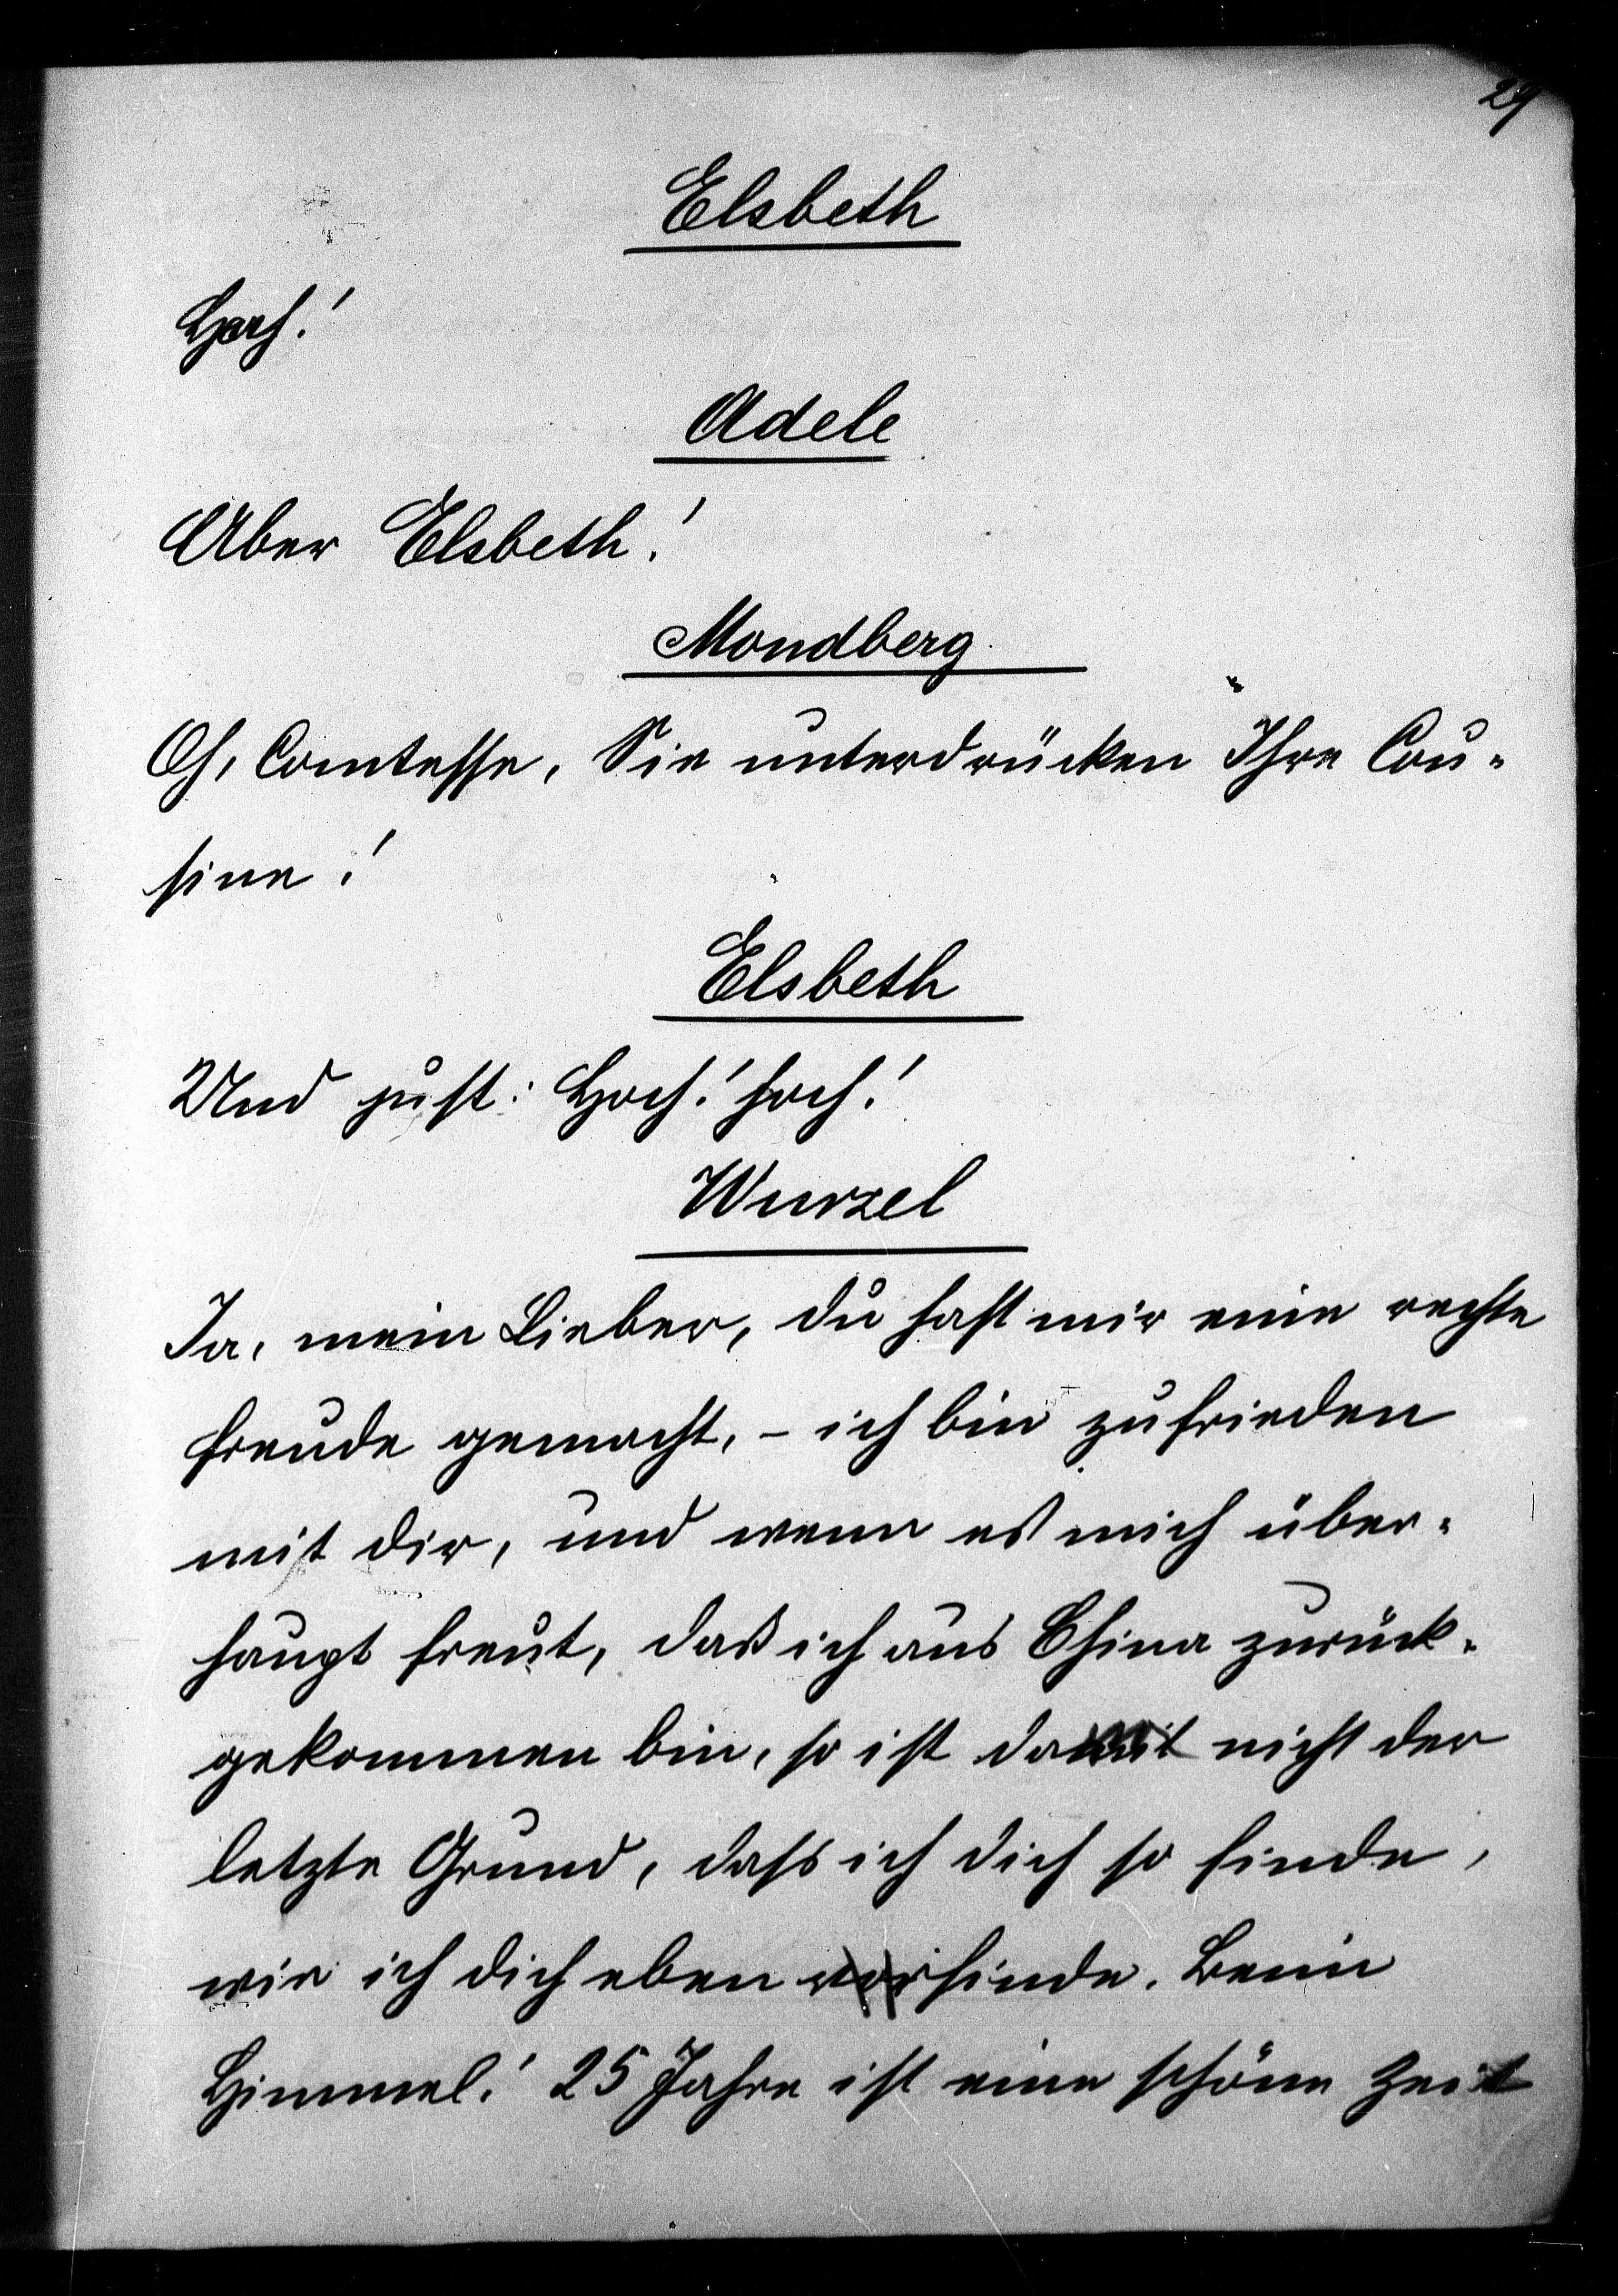 29
Elsbeth
Hoch!
Adele
Aber Elsbeth!
Mondberg.
Oh, Comtesse, Sie unterdrücken Ihre Cou-
sine!
Elsbeth
Und just: Hoch! hoch!
Wurzel
Ja, mein Lieber, du hast mir eine rechte
Freude gemacht, - ich bin zufrieden
mit dir, und wenn es mich über-
haupt freut, daß ich aus China zurück-
gekommen bin, so ist damit nicht der
letzte Grund, dass ich dich so finde,
wie ich dich eben vorfinde. Beim
Himmel! 25 Jahre ist eine schöne Zeit